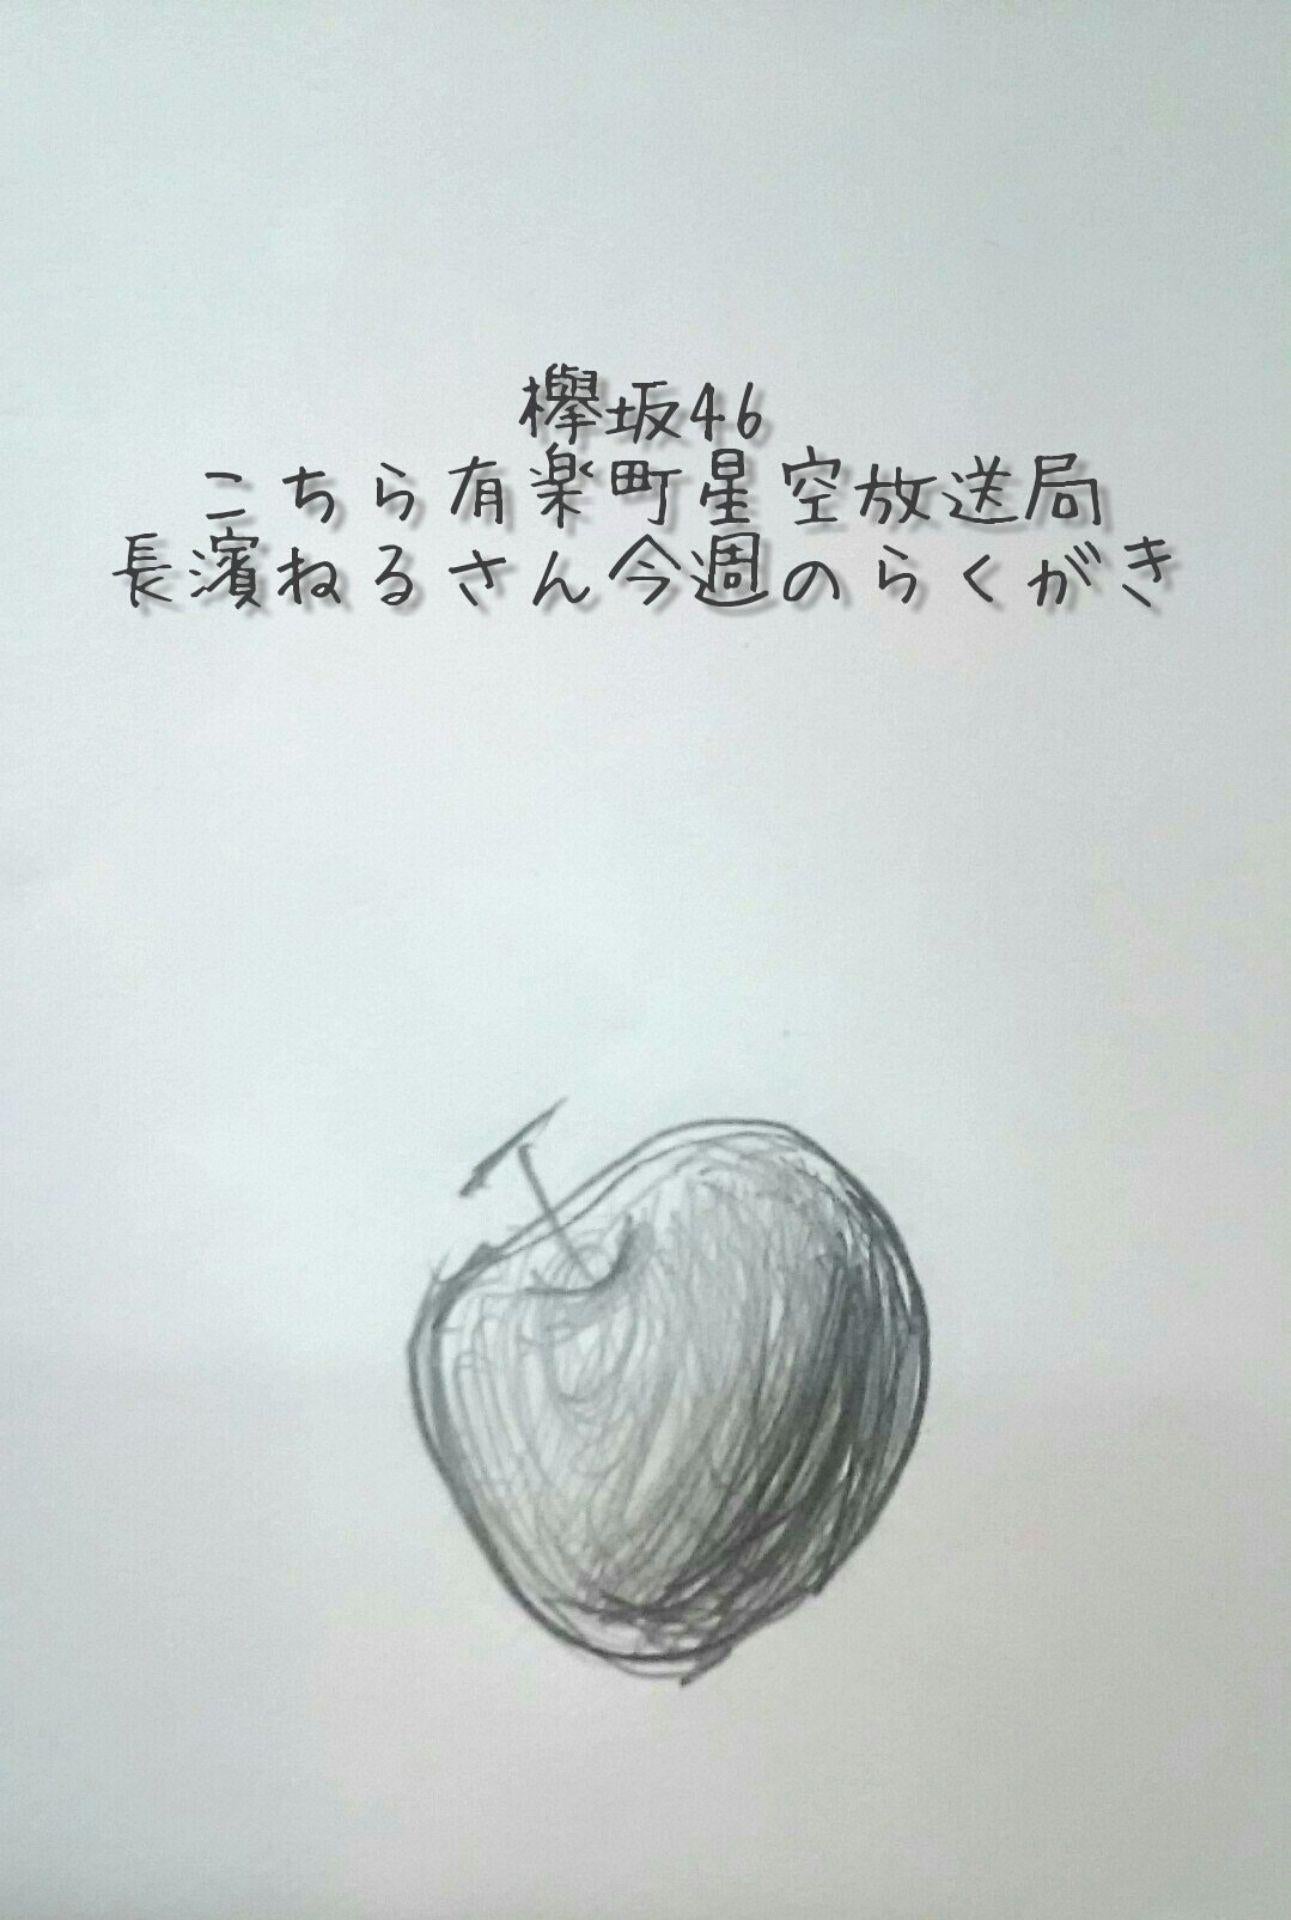 欅坂46
こちら有楽町星空放送局
長濱ねるさん今週のらくがき